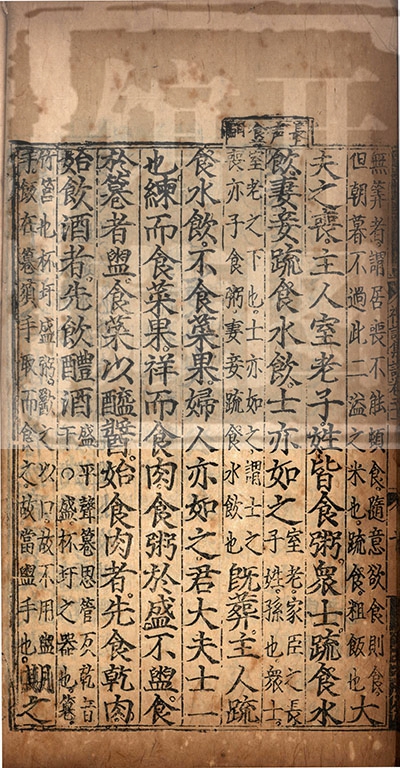 無筭者謂居喪不能頓食隨意欲食則食
但朝暮不過此二溢之米也疏食粗飯也
大
夫之喪主人室老子姓皆食粥衆士疏食水
飲妻妾疏食水飲士亦如之
室老家臣之長
子姓孫也衆士
室老之下也士亦如之謂士之
喪亦子食粥妻妾疏食水飲也
既葬主人疏
食水飲不食菜果婦人亦如之君大夫士一
也練而食菜果祥而食肉食粥於盛不盥食
於篹者盥食菜以醯醬始食肉者先食乾肉
始飲酒者先飲醴酒
盛平聲篹思管反乾音
干○盛杯圩之器也篹
竹筥也杯圩盛粥歠之以口故不用盥
手飯在篹須手取而食之故當盥手也
期之